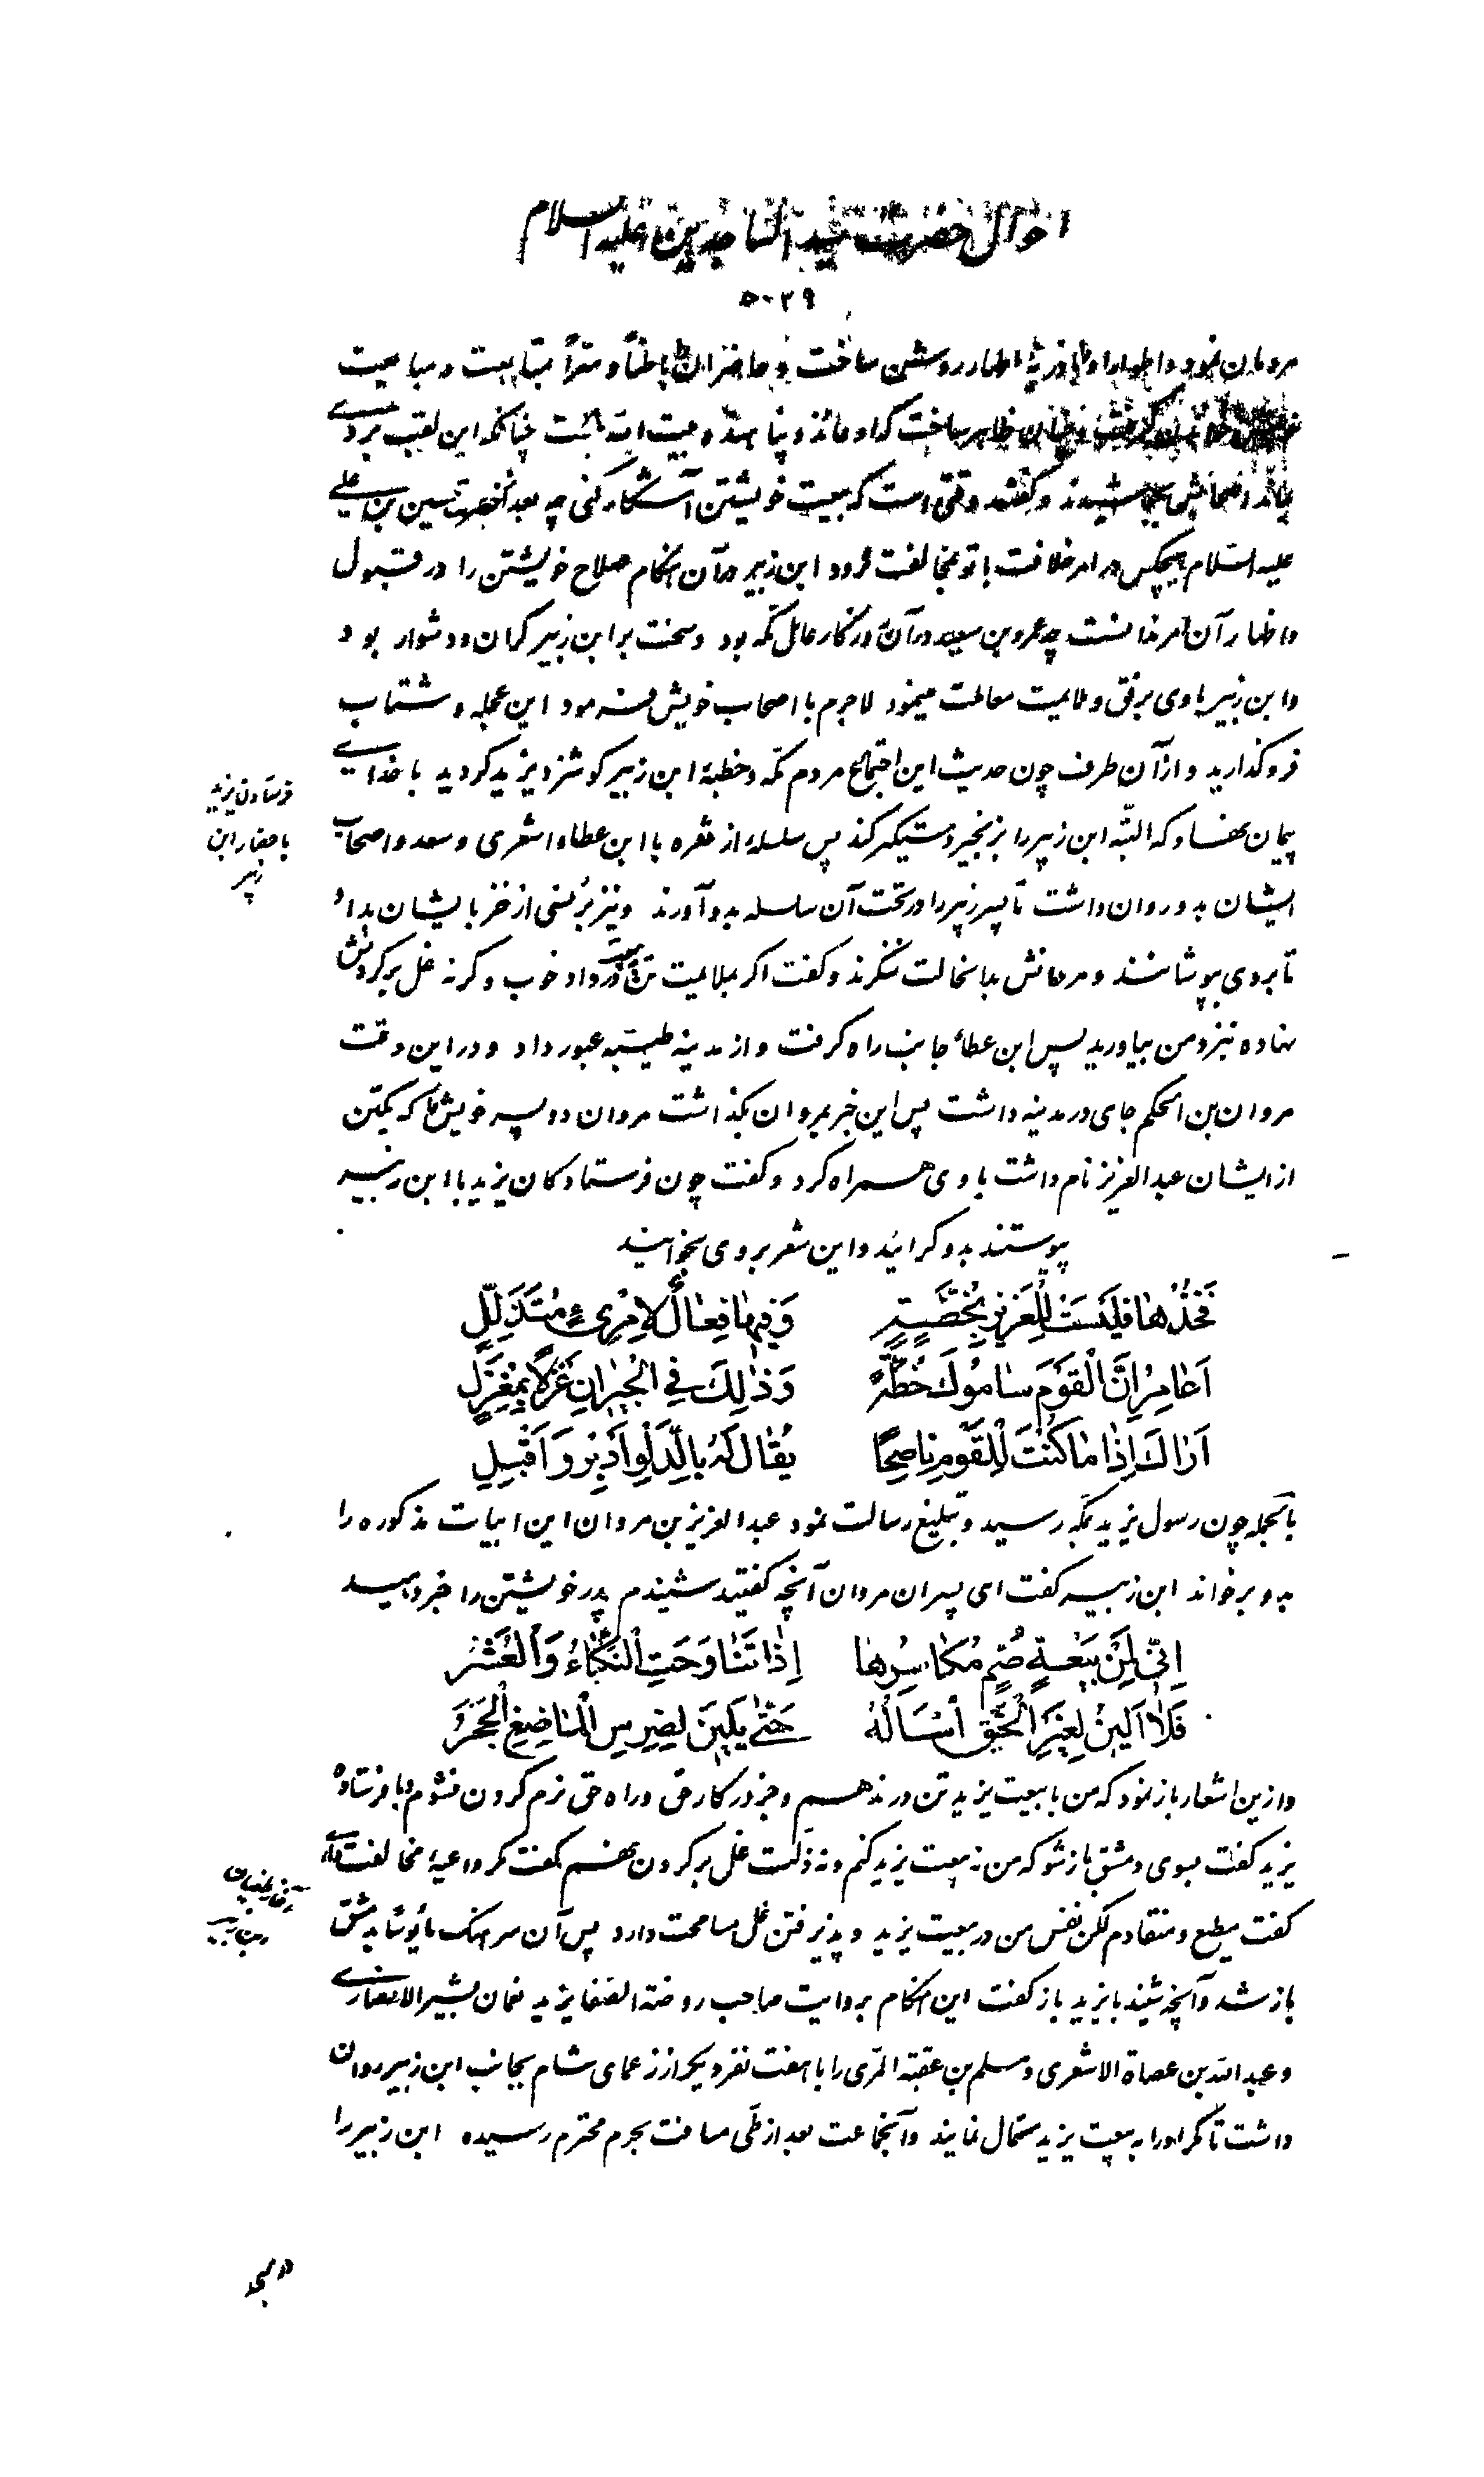 احوال حضرت سید الساجدین علیه السلام
۵۰۳۹
مردمان نمود و اظهار روشن ساخت و حاضران باطناً و سراً متابعت و مبایعت
ظاهر ساخت که او عائذ و پناهنده بیت الله است چنانکه این لقب بر وی
بماند اصحابش و گفتند وقتی است که بیعت خویشتن آشکار کنی چه بعد از حسین بن علی
علیه السلام هیچکس در امر خلافت با تو مخالفت نورزد ابن زبیر در آن هنگام صلاح خویشتن را در قبول
و اظهار آن امر ندانست چه عمرو بن سعید در آن روزگار عامل مکه بود و سخت بر ابن زبیر گران و دشوار بود
و ابن زبیر با وی برفق و ملایمت معاملت مینمود لاجرم با اصحاب خویش فرمود این عجله و شتاب
فروگذارید و از آن طرف چون حدیث این اجتماع مردم مکه و خطبهٔ ابن زبیر گوشزد یزید گردید با خدای
فرستادن یزید
باحضار ابن
زبیر
پیمان بنهاد که البته ابن زبیر را بزنجیر دستگیر کند پس سلسلهٔ از نقره با ابن عطاء اشعری و سعد و اصحاب
ایشان بدو روان داشت تا پسر زبیر را در تحت آن سلسله بدو آورند و نیز برنسی از خز با ایشان بداد
تا بروی بپوشانند و مردمانش بدانحالت ننگرند و گفت اگر بملایمت تن به بیعت در داد خوب و گرنه غل بر گردنش
نهاده نزد من بیاورید پس ابن عطاء جانب راه گرفت و از مدینه طیبه عبور داد و در این وقت
مروان بن الحکم جای در مدینه داشت پس این خبر بمروان بگذاشت مروان دو پسر خویش را که یکتن
از ایشان عبد العزیز نام داشت با وی همراه کرد و گفت چون فرستادگان یزید با ابن زبیر
پیوستند بدو گرائید و این شعر بر وی بخوانید
فَخُذْهٰا فَلَیْسَتْ لِلْعَزیزِ بِخُطَّةٍ وَفیهٰا فِعٰالٌ لِامْرِیءٍ مُتَذَلِّلٍ
اَعٰامِرُ اِنَّ الْقَوْمَ سٰامُوكَ خُطَّةً وَذٰلِكَ فِی الْجیرٰانِ غَزْلًا بِمِغْزَلٍ
اَرٰاكَ اِذٰا مٰا كُنْتَ لِلْقَوْمِ نٰاصِحًا یُقٰالُ لَهُ بِالدَّلْوِ اَدْبِرْ وَاَقْبِلِ
بالجمله چون رسول یزید بمکه رسید و تبلیغ رسالت نمود عبد العزیز بن مروان این ابیات مذکوره را
بدو برخواند ابن زبیر گفت ای پسران مروان آنچه گفتید شنیدم پدر خویشتن را خبر دهید
اِنّی لَمِنْ نَبْعَةٍ صُمٍّ مَكٰاسِرُهٰا اِذٰا تَنٰاوَحَتِ النَّكْبٰاءُ وَالْعُشَرُ
فَلٰا اَلینُ لِغَیْرِ الْحَقِّ اَسْاَلُهُ حَتّٰی یَلینَ لِضِرْسِ الْمٰاضِغِ الْحَجَرُ
و ازین اشعار باز نمود که من با بیعت یزید تن در ندهم و جز در کار حق و راه حق نرم گردن نشوم و با فرستادهٔ
یزید گفت بسوی دمشق باز شو که من نه بیعت یزید کنم و نه ذلت غل بر گردن نهم گفت مگر داعیهٔ مخالفت داری
گفت مطیع و منقادم لکن نفس من در بیعت یزید و پذیرفتن غل مسامحت دارد پس آن سرهنگ مأیوساً بدمشق
باز شد و آنچه شنید با یزید باز گفت این هنگام بروایت صاحب روضة الصفا یزید نعمان بشیر الانصاری
و عبد الله بن عصاة الاشعری و مسلم بن عقبة المری را با هفت نفر دیگر از زعمای شام بجانب ابن زبیر روان
داشت تا مگر او را به بیعت یزید مستمال نمایند و آنجماعت بعد از طی مسافت بحرم محترم رسیده ابن زبیر را